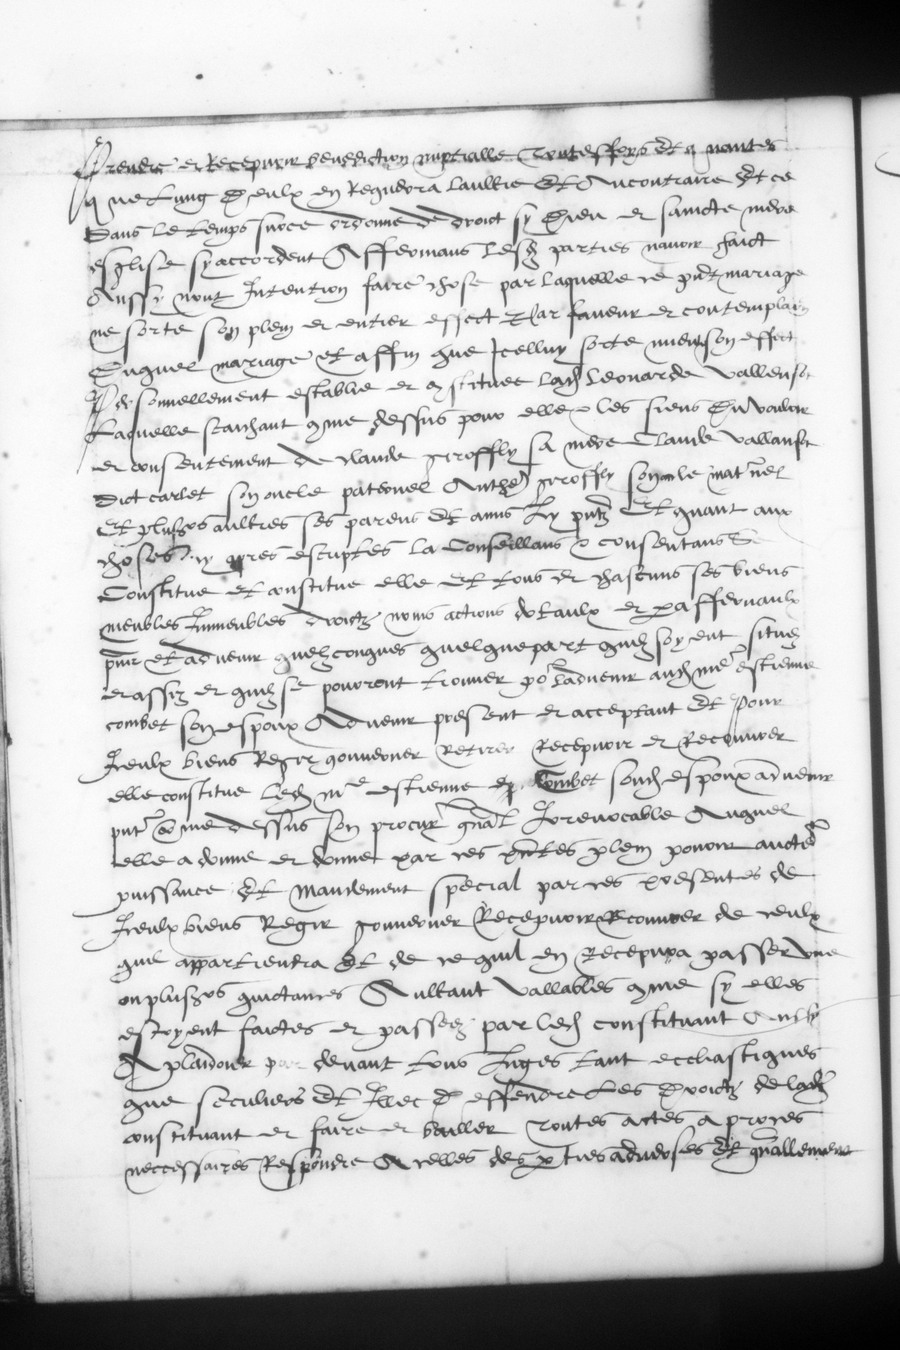 Prendre et Recepvoir benediction nuptialle Touteffoys et q nantes
que lung D eulx en Requerra laultre Et Au contraire Et ce
Dans le temps sur ce ordonne de droict sy Dieu et saincte mere
esglise sy accordent Affermans lesd parties navoir faict
Aussy nont Intention faire chose par laquelle ce pnt mariage
ne sorte son plein et entier effect Par faveur et contemplaon
Duquel mariage et affin que Icelluy sorte mieux son effect
Personnellement establie et constituee lad Leonarde vallense
Laquelle scaichant comme dessus pour elle et les siens Du vouloir
et consentement de claude groffly sa mere Claude vallanse
dict carlet son oncle paternel Anthe groffly son oncle mat nel
Et plusrs aultres ses parens et amis Ly pntz Et quant aux
choses cy apres escriptes La Conseillans & consentans
Constitue et constitue elle et tous et chascuns ses biens
meubles Immeubles droictz noms actions dotaulx et paraffernaulx
pnts et advenir quelzconques quelque part quilz soyent situez
et assiz et quilz se pourront trouver po ladvenir aud me estienne
combet son espoux Advenir present et acceptant Et Pour
Iceulx biens Regir gouverner Retirer Recepvoir et Recouvrer
elle constitue led me estienne Combet sond espoux advenir
pnt comme dessus son procur gnal Irrevocable Auquel
elle a donne et donne par ces pntes plein povoir aucte
puissance Et Mandement special par ces presentes de
Iceulx biens Regir gouverner Recepvoir Recouvrer de ceulx
quil appartiendra Et de ce quil en Recepvra passer une
ou plusrs quictances Aultant vallables comme sy elles
estoyent faictes et passees par lad constituant Aussy
A plaidoier par devant tous Juges tant ecclesiastiques
que seculiers Et Illec D effendre Les Droictz de lad
constituant et faire et bailler Toutes actes a proces
neccessaires Respondre A celles des parties adverses Et gnallement